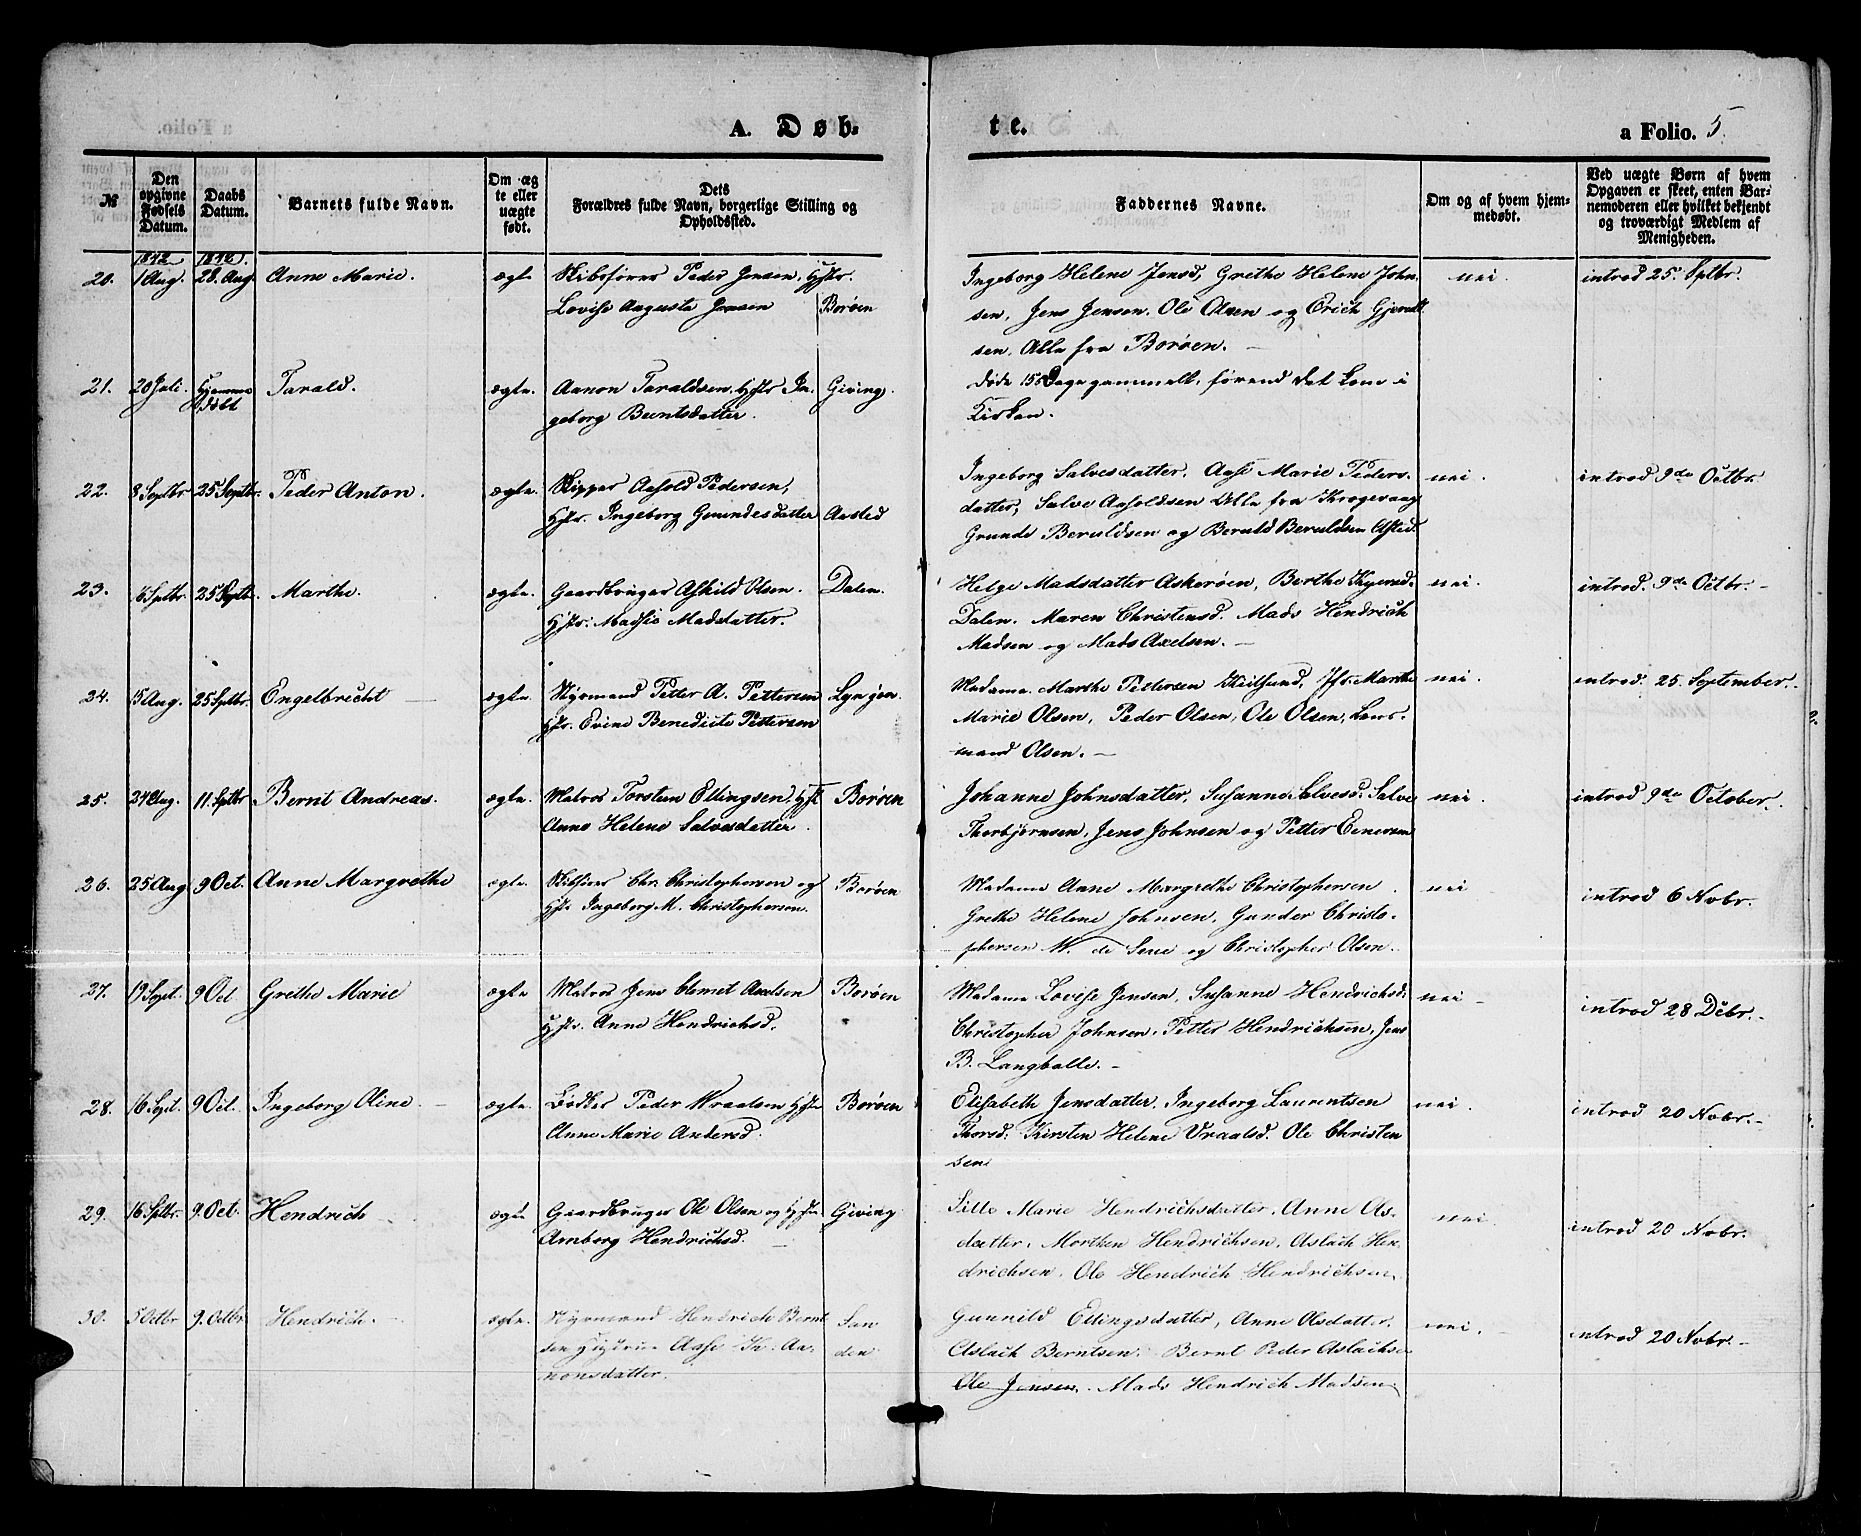 A. Døb-
te.
a Folio. 5.
№
Den opgivne Fødsels Datum.
Daabs Datum.
Barnets fulde Navn.
Om ægte eller uægte født.
Dets Forældres fulde Navn, borgerlige Stilling og Opholdssted.
Faddernes Navne.
Om og af hvem hjemmedøbt.
Ved uægte Børn af hvem Opgaven er skeet, enten Barnemoderen eller hvilket bekjendt og troværdigt Medlem af Menigheden.
1842 1842.
20. 1 Aug. 28. Aug. Anne Marie. ægte Skibsfører Peder Jensen, Hstr.
Lovise Augusta Jensen Borøen
Ingeborg Helene Jensd, Grethe Helene John-
sen, Jens Jensen, Ole Olsen og Erich
sen, Alle fra Borøen.
nei. introd 25. Sptbr.
21. 20 Juli. Hjemme døbt Tarald. ægte. Aanon Taraldsen, Hstr In-
geborg Berntsdatter. Giving.
døde Dage gammelt, førend det kom i
Kirken.
22. 8 Septbr 25 Septbr. Peder Anton. ægte. Skipper Aasold Pedersen,
Hstr. Ingeborg Gundesdatter Aasted
Ingeborg Salvesdatter, Aase Marie Peders-
datter, Salve Aasoldsen Alle fra Krogevaag
Grunde Beruldsen og Beruld Beruldsen
nei. introd 9de Octbr.
23. 6 Sptbr. 25 Septb. Marthe. ægte. Gaardbruger Askild Olsen.
Hstr. Madsie Madsdatter. Dalen.
Helge Madsdatter Askerøen, Berthe
Dalen. Maren Christensd. Mads Hendrich
Madsen og Mads Axelsen.
nei. introd. 9de Octbr.
24. 15 Aug. 25 Sptbr. Engelbrecht ægte. Styrmand Petter A. Pettersen
Hstr. Evine Benedicte Pettersen Lyngøen.
Madame Marthe Pettersen Jfr. Marthe
Marie Olsen, Peder Olsen, Ole Olsen, Lens-
mand Olsen.
nei. introd. 25. September.
25. 24 Aug. 11. Sptbr Bernt Andreas. ægte. Matros Torsten Ellingsen, Hstr
Anne Helene Salvesdatter. Borøen
Johanne Johnsdatter, Susanne Salvesd. Salve
Thorbjørnsen, Jens Johnsen og Petter Enersen
nei. introd 9de October.
26. 25 Aug 9 Oct. Anne Margrethe ægte. Skibsfører Chr. Christophersen og
Hstr Ingeborg M. Christophersen. Borøen
Madame Anne Margrethe Christophersen
Grethe Helene Johnsen, Gunder Christo-
phersen W. de Seue og Christopher Olsen.
nei. introd 6 Nobr.
27. 19 Sept. 9 Oct Grethe Marie ægte Matros Jens Clemet Axelsen
Hstr. Anne Hendrichsd. Borøen
Madame Lovise Jensen, Susanne Hendrichsd.
Christopher Johnsen, Petter Hendrichsen, Jens
B. Langballe.
nei introd 28 Debr.
28. 16 Sept. 9 Oct. Ingeborg Oline ægte. Bødker Peder Wraalsen Hstr
Anne Marie Andersd. Borøen
Elisabeth Jensdatter, Ingeborg Laurentsen
Thorsd. Kirsten Helene Vraalsd. Ole Christen
sen
nei. introd 20 Nobr.
29. 16 Sptbr. 9. Oct. Hendrich ægte Gaardbruger Ole Olsen og Hstr.
Amborg Hendrichsd. Giving
Sille Marie Hendrichsdatter, Anne Ols-
datter, Morthen Hendrichsen, Aslach Hen
drichsen, Ole Hendrich Hendrichsen
nei. introd 20 Nobr.
30. 5 Octbr 9. Octbr. Hendrich. ægte. Styrmand Hendrich Bernt
sen Hustrue Aase K. Aa-
nonsdatter. San
den
Gunnild Ellingsdatter, Anne Olsdatter.
Aslach Berntsen. Bernt Peder Aslachsen
Ole Jensen. Mads Hendrich Madsen
nei. introd 20 Nobr.